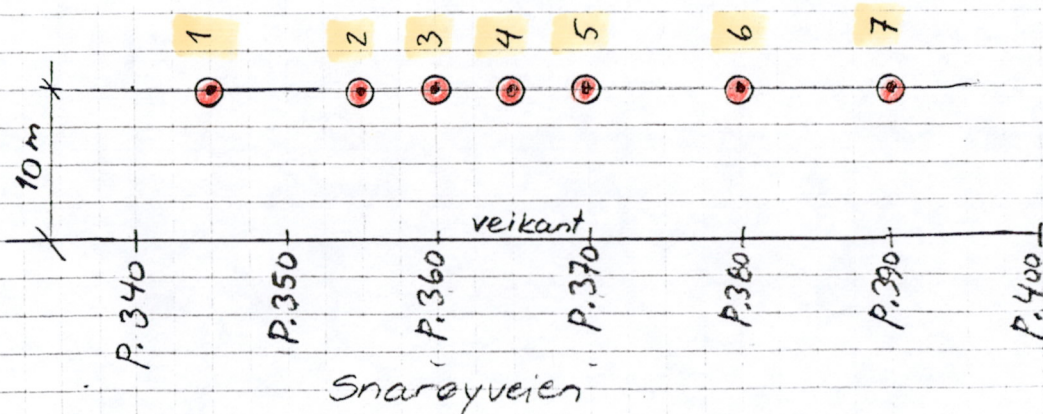 1 2 3 4 5 6 7
10 m
veikant
P.340 P.350 P.360 P.370 P.380 P.390 P.400
Snarøyveien